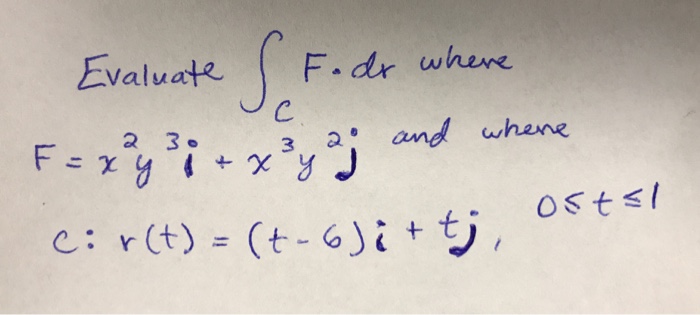 Evaluate ∫_C F·dr where
F = x²y³i + x³y²j and where
C: r(t) = (t-6)i + tj, 0≤t≤1